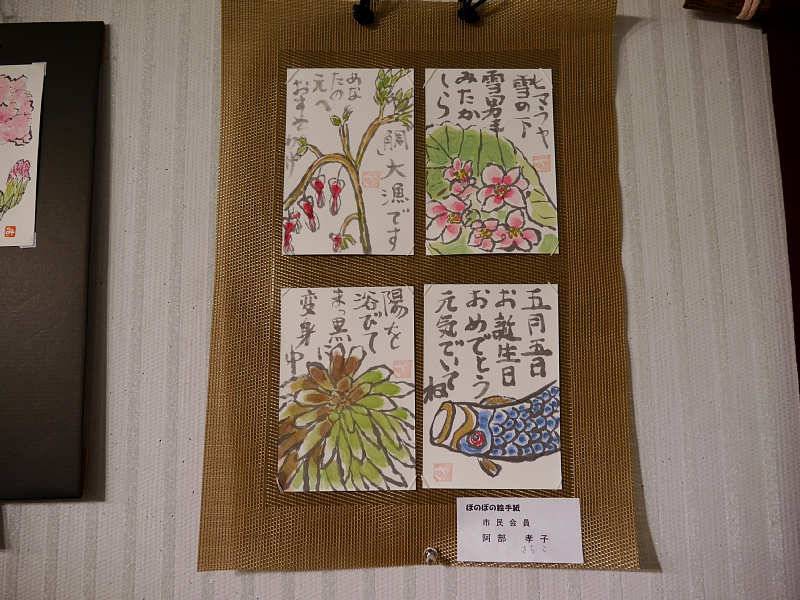 「鯛」大漁です
あな
たの
元へ
おすそわけ
ヒマラヤ
雪の下
雪男を
みたか
しら
陽を
浴びて
まっ黒に
変身中
五月五日
お誕生日
おめでとう
元気でいて
ね
ほのぼの絵手紙
市民会員
阿部 孝子